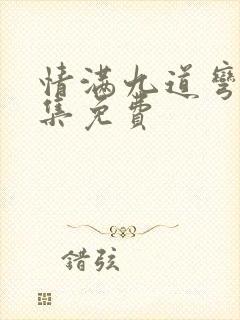 情满九道弯
集免费
错弦